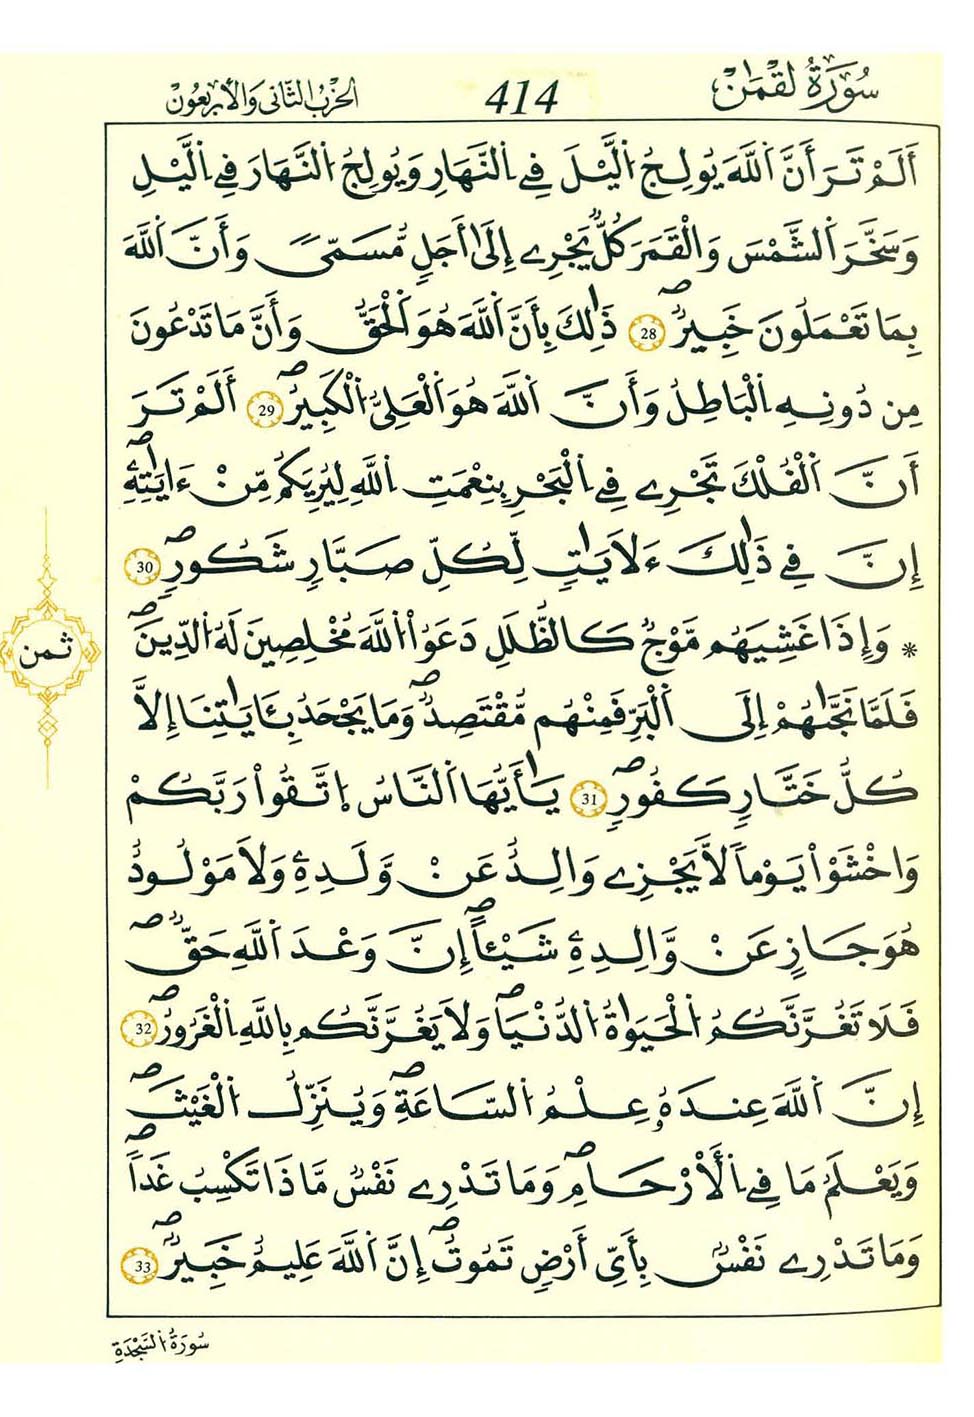 سُورَةُ لُقْمَٰنَ 414 الحِزْبُ الثَّانِي وَالأَرْبَعُونَ
أَلَمْ تَرَ أَنَّ اَللَّهَ يُولِجُ اُ۬ليْلَ فِے اِ۬لنَّهَارِ وَيُولِجُ اُ۬لنَّهَارَ فِے اِ۬ليْلِ
وَسَخَّرَ اَ۬لشَّمْسَ وَالْقَمَرَ كُلٌّ يَجْرِے إِلَىٰ أَجَلٍ مُّسَمّىً وَأَنَّ اَ۬للَّهَ
بِمَا تَعْمَلُونَ خَبِيرٌ 28 ذَٰلِكَ بِأَنَّ اَ۬للَّهَ هُوَ اَ۬لْحَقُّ وَأَنَّ مَا تَدْعُونَ
مِن دُونِهِ اِ۬لْبَاطِلُ وَأَنَّ اَ۬للَّهَ هُوَ اَ۬لْعَلِيُّ اُ۬لْكَبِيرُ 29 أَلَمْ تَرَ
أَنَّ اَ۬لْفُلْكَ تَجْرِے فِے اِ۬لْبَحْرِ بِنِعْمَتِ اِ۬للَّهِ لِيُرِيَكُم مِّنْ ءَايَٰتِهِۦٓ
إِنَّ فِي ذَٰلِكَ ءَلَايَٰتٍ لِّكُلِّ صَبَّارٍ شَكُورٍ 30
* وَإِذَا غَشِيَهُم مَّوْجٌ كَالظُّلَلِ دَعَوُاْ اُ۬للَّهَ مُخْلِصِينَ لَهُ اُ۬لدِّينَ
ثمن
فَلَمَّا نَجَّىٰهُمْ إِلَى اَ۬لْبَرِّ فَمِنْهُم مُّقْتَصِدٌ وَمَا يَجْحَدُ بِـَٔايَٰتِنَا إِلاَّ
كُلُّ خَتَّارٍ كَفُورٍ 31 يَٰأَيُّهَا اَ۬لنَّاسُ اُ۪تَّقُواْ رَبَّكُمْ
وَاخْشَوْاْ يَوْماً لاَّ يَجْزِے وَالِدٌ عَنْ وَّلَدِهِۦ وَلَا مَوْلُودٌ
هُوَ جَازٍ عَنْ وَّالِدِهِۦ شَيْـٔاً إِنَّ وَعْدَ اَ۬للَّهِ حَقٌّ
فَلَا تَغُرَّنَّكُمُ اُ۬لْحَيَوٰةُ اُ۬لدُّنْيَا وَلَا يَغُرَّنَّكُم بِاللَّهِ اِ۬لْغَرُورُ 32
إِنَّ اَ۬للَّهَ عِندَهُۥ عِلْمُ اُ۬لسَّاعَةِ وَيُنَزِّلُ اُ۬لْغَيْثَ
وَيَعْلَمُ مَا فِے اِ۬لْأَرْحَامِ وَمَا تَدْرِے نَفْسٌ مَّاذَا تَكْسِبُ غَداً
وَمَا تَدْرِے نَفْسٌ بِأَيِّ أَرْضٍ تَمُوتُ إِنَّ اَ۬للَّهَ عَلِيمٌ خَبِيرٌ 33
سُورَةُ اُ۬لسَّجْدَةِ